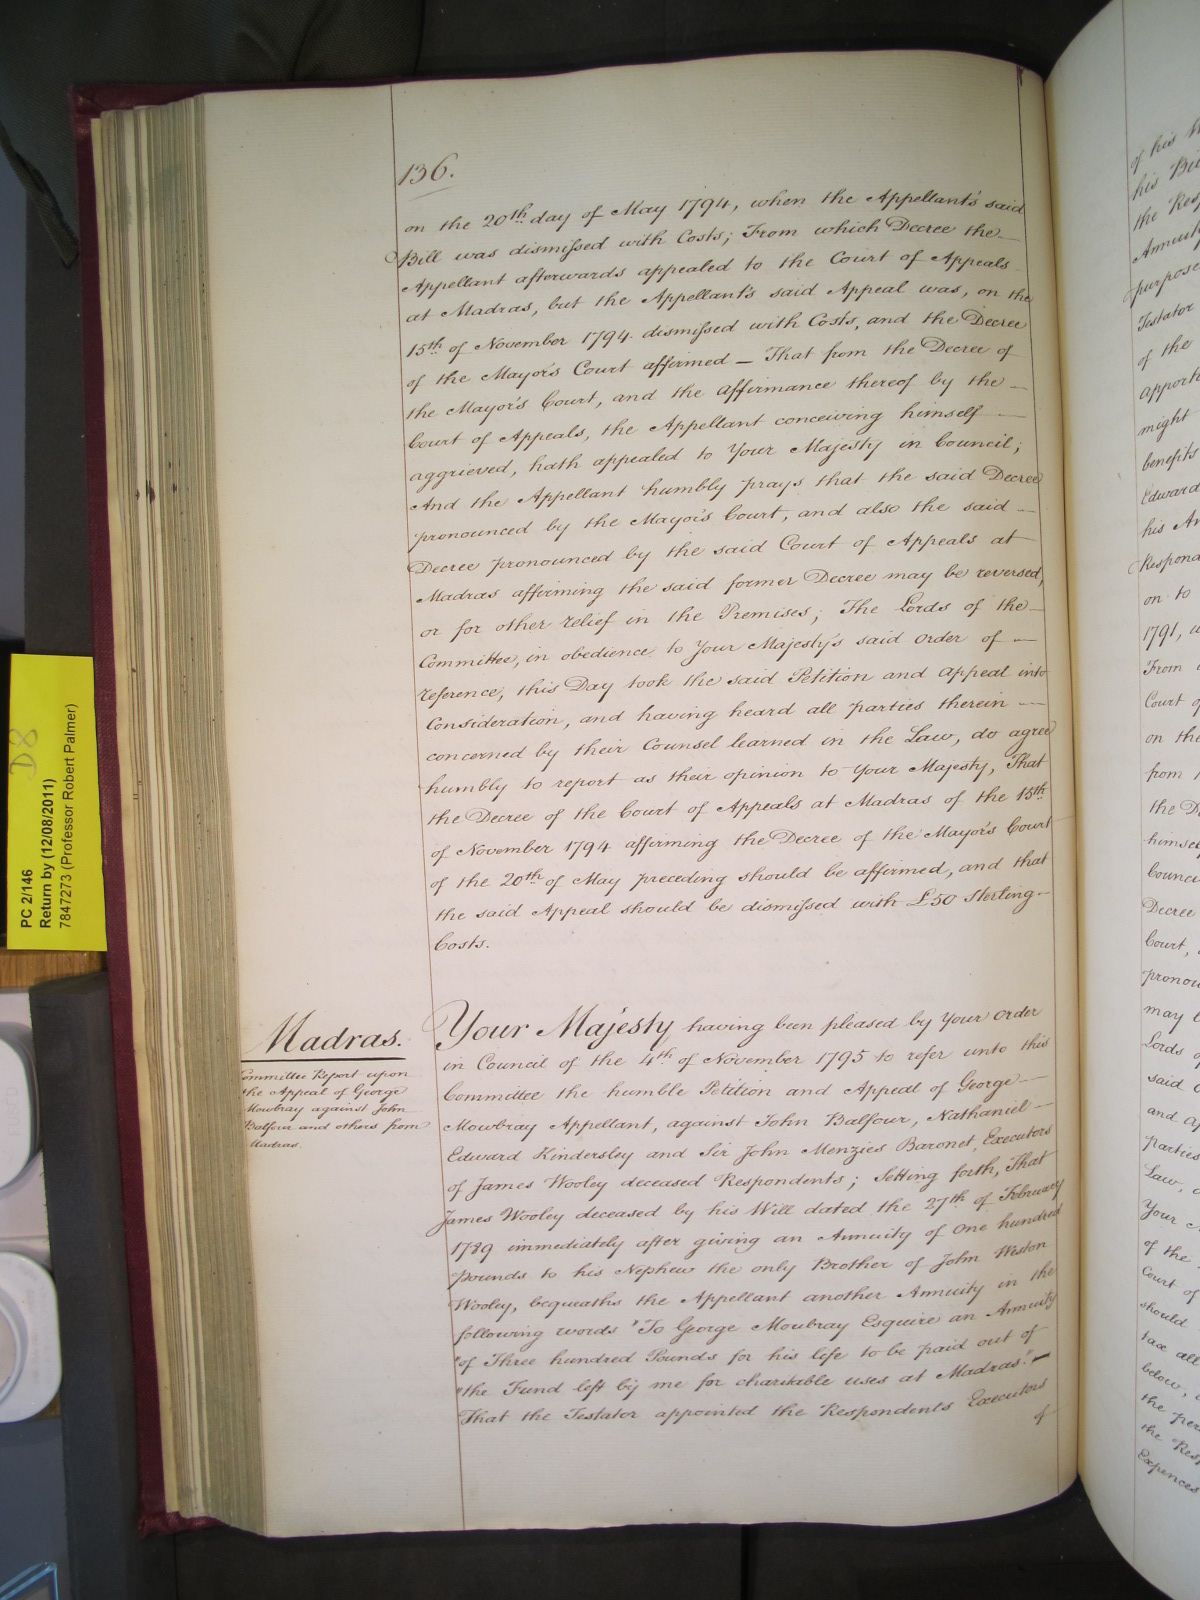 136.
on the 20th day of May 1794, when the Appellant's said
Bill was dismissed with Costs; From which Decree the
Appellant afterwards appealed to the Court of Appeals
at Madras, but the Appellant's said Appeal was, on the
15th of November 1794 dismissed with Costs, and the Decree
of the Mayor's Court affirmed — That from the Decree of
the Mayor's Court, and the affirmance thereof by the —
Court of Appeals, the Appellant conceiving himself —
aggrieved, hath appealed to Your Majesty in Council;
And the Appellant humbly prays that the said Decree
pronounced by the Mayor's Court, and also the said —
Decree pronounced by the said Court of Appeals at
Madras affirming the said former Decree may be reversed,
or for other relief in the Premises; The Lords of the —
Committee, in obedience to Your Majesty's said Order of —
reference, this Day took the said Petition and Appeal into
Consideration, and having heard all parties therein —
concerned by their Counsel learned in the Law, do agree
humbly to report as their opinion to Your Majesty, That
the Decree of the Court of Appeals at Madras of the 15th
of November 1794 affirming the Decree of the Mayor's Court
of the 20th of May preceding should be affirmed, and that
the said Appeal should be dismissed with £50 Sterling —
Costs.
Madras.
Committee Report upon
the Appeal of George
Mowbray against John
Balfour and others from
Madras.
Your Majesty having been pleased by Your Order
in Council of the 4th of November 1795 to refer unto this
Committee the humble Petition and Appeal of George —
Mowbray Appellant, against John Balfour, Nathaniel —
Edward Kindersley and Sir John Menzies Baronet, Executors
of James Wooley deceased Respondents; Setting forth, That
James Wooley deceased by his Will dated the 27th of February
1789 immediately after giving an Annuity of One hundred
Pounds to his Nephew the only Brother of John Weston
Wooley, bequeaths the Appellant another Annuity in the
following words "To George Mowbray Esquire an Annuity
"of Three hundred Pounds for his life to be paid out of
"the Fund left by me for charitable uses at Madras." —
That the Testator appointed the Respondents Executors
of
PC 2/146
Return by (12/08/2011)
7847273 (Professor Robert Palmer)
D8
of his
his
the
purpose
Testator
of the
might
benefits
Edward
his
on to
1791,
From
Court
on the
from
the
Decree
Court,
may
Lords
said
and
parties
Law,
Your
of the
Court of
should
tax all
below,
the
the
Expences